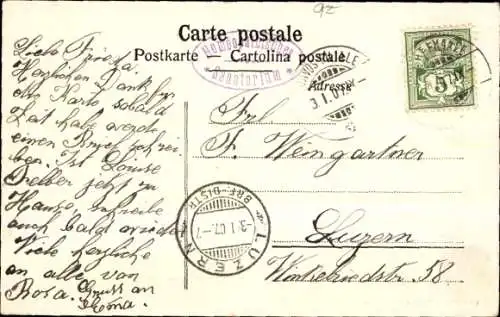 92
Carte postale
Postkarte — Cartolina postale
Homöopathisches
Sanatorium
Adresse
3.1.07
5
Liebe Frieda.
Herzlichen Dank für
die Karte sobald
Zeit habe werde
einen Brief schrei-
ben. Ist Louise
selber jetzt zu
Hause, schreibe
auch bald wieder
Viele herzliche
an alle von
Rosa. Gruss an
Frl.
F. Weingartner
Luzern
Winkelriedstr. 58
LUZERN
BRF. DISTR.
-3.1.07.-7